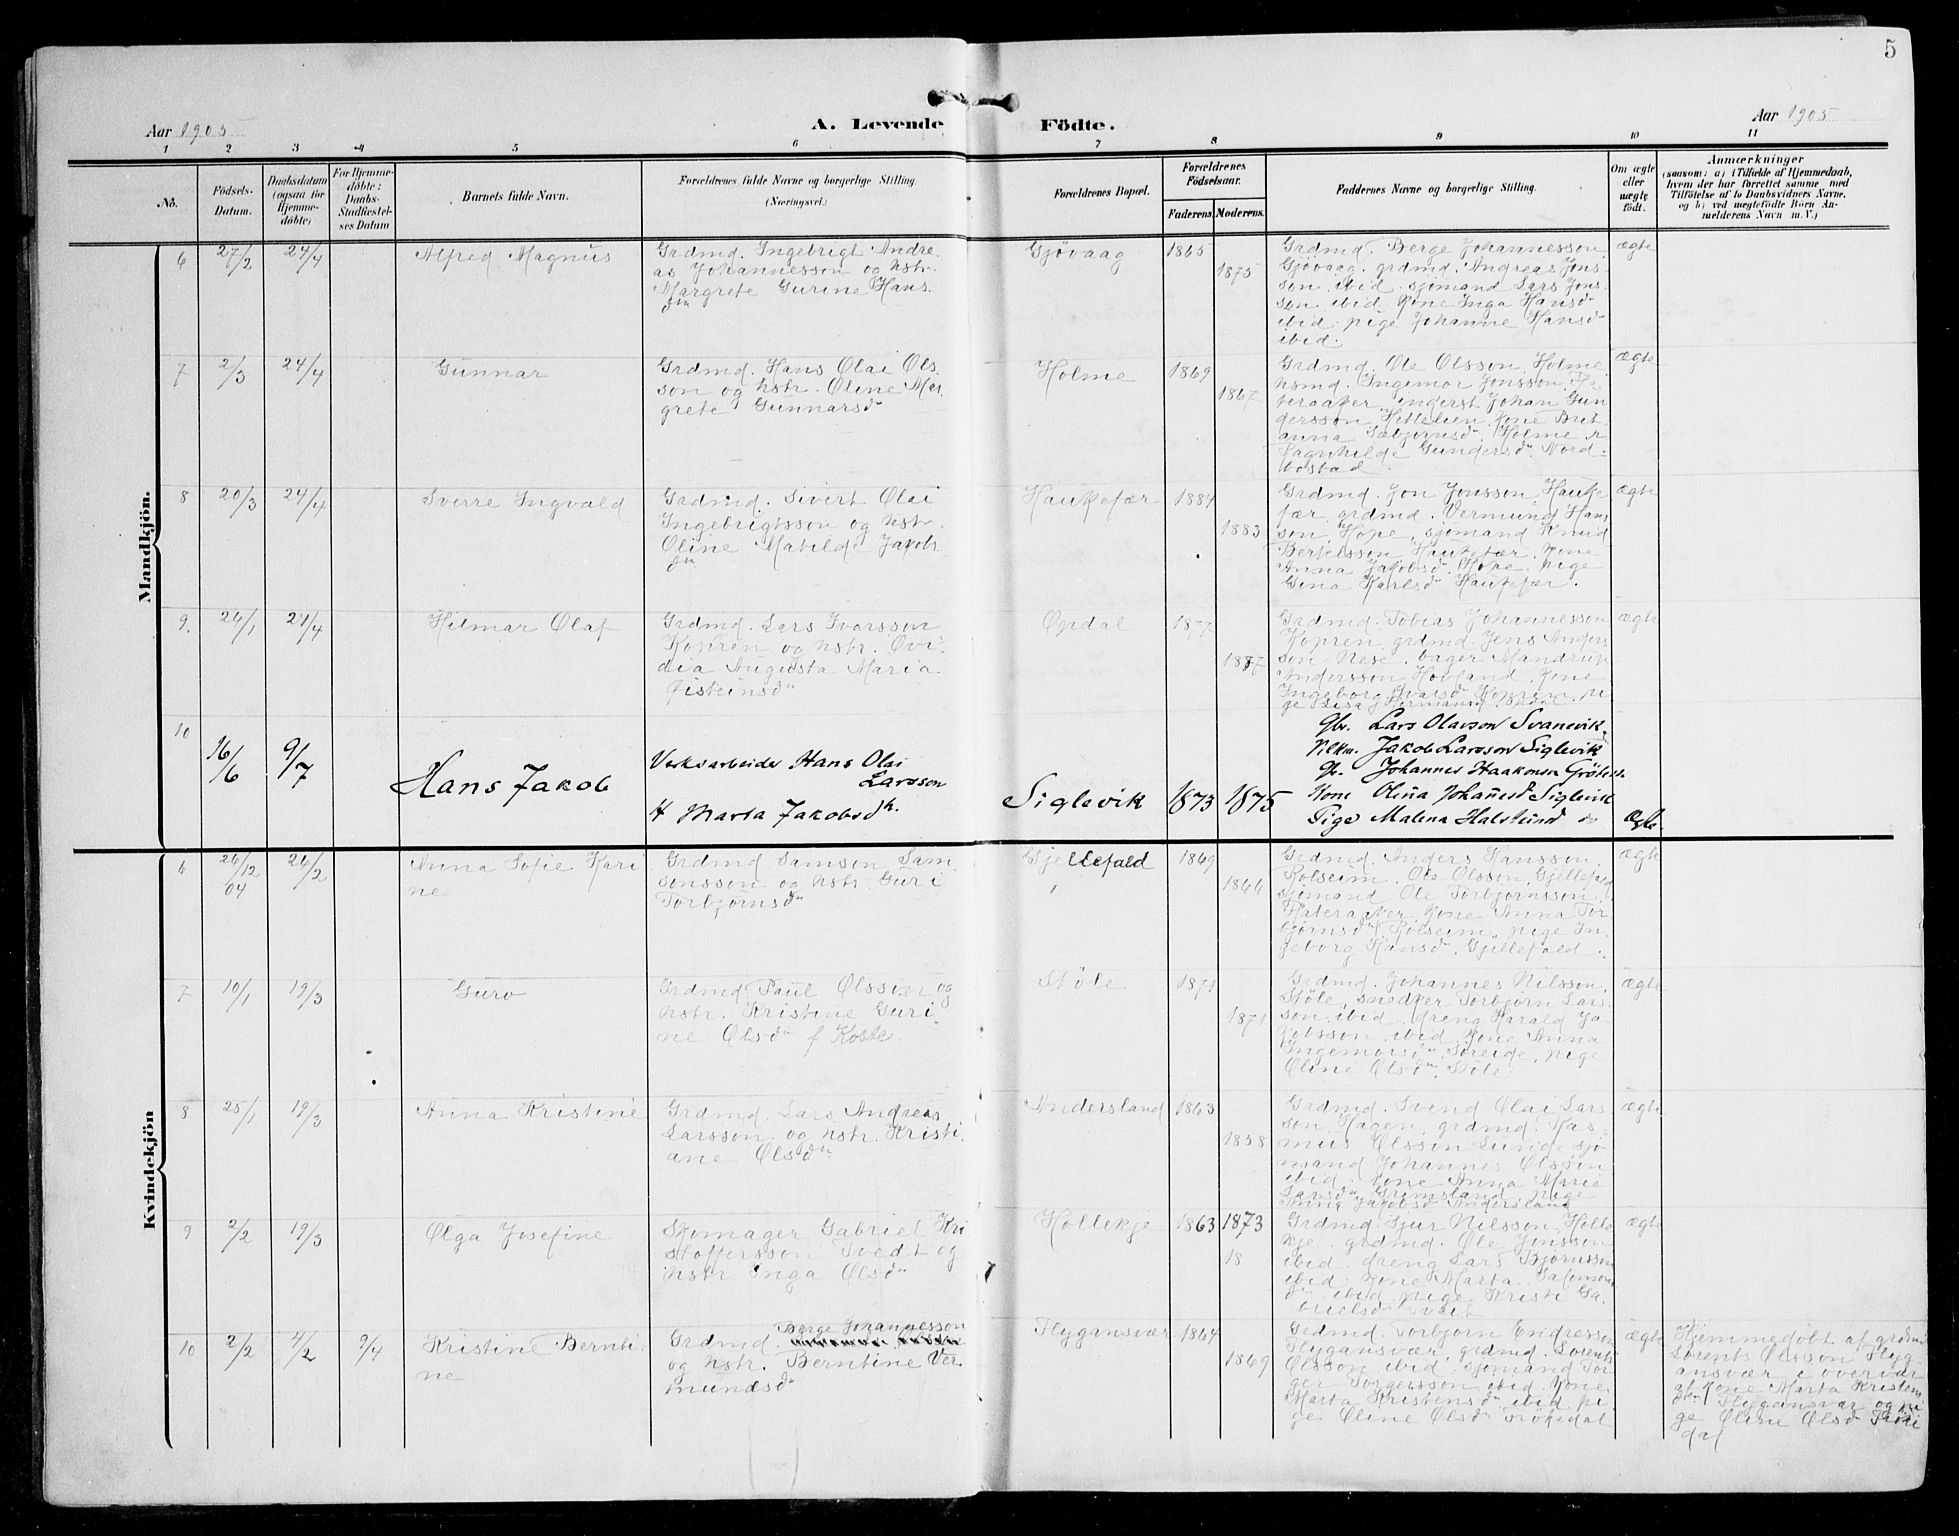 5
Aar 1905
A. Levende Födte.
Aar 1905
1 2 3 4 5 6 7 8 9 10 11
No.
Födsels-Datum.
Daabsdatum (ogsaa for Hjemmedöbte)
For Hjemmedöbte: Daabs-Stadfæstelses Datum
Barnets fulde Navn.
Forældrenes fulde Navne og borgerlige Stilling.
(Næringsvei.)
Forældrenes Bopæl.
Forældrenes Födselsaar.
Faderens. Moderens.
Faddernes Navne og borgerlige Stilling.
Om ægte eller uægte födt.
Anmærkninger
(saasom: a) i Tilfælde af Hjemmedaab,
hvem der har forrettet samme med
Tilföielse af to Daabsvidners Navne,
og b) ved uægtefödte Börn An-
melderens Navn m. V.)
Mandkjön.
6 27/2 24/4 Alfred Magnus
Grdmd. Ingebrigt Andre-
as Johannesson og hstr.
Margrete Gurine Hans
dtr
Gjövaag 1865
1875
Grdmd. Berge Johannesson
Gjövaag, grdmd. Andreas Jons-
son ibid. sjömand Lars Jons-
son ibid. kone Inga Hansd
ibid. pige Johanne Hansd
ibid.
ægte
7 2/3 24/4 Gunnar
Grdmd. Hans Olai Ols
son og hstr. Oline Mar
grete Gunnarsd
Holme 1869
1867
Grdmd. Ole Olsson, Holme,
hsmd. Ingemor Jonsson,
inderst Johan Gun
dersson Hettelien, kone Brit
anna Sæbjörnsd. Holme
Ragnhilde Gundersd. Nord-
bostad.
ægte
8 20/3 24/4 Sverre Ingvald
Grdmd. Sivert Olai
Ingebrigtsson og hstr.
Oline Matilde Jakobs
dtr
Haukefær 1884
1883
Grdmd. Jon Jonsson, Hauke
fær, grdmd. Vermund Hans
son, Hope, sjömand Knud
Bertelsson Haukefær, kone
Anna Jakobsd. Hope, pige
Gina Karlsd Haukefær.
ægte
9. 26/1 24/4 Hilmar Olaf
Grdmd. Lars Ivarsson
Kopren og hstr. Ovi-
dia Augusta Maria
Öisteinsd
Opdal 1877
1887
Grdmd. Tobias Johannesson
Kopren, grdmd Jens Anders
son Nese, bager Mandrup
Andersson Hovland, kone
Ingeborg Ivarsd Kopren, pi
ge Lisa Hermansd
ægte
10
16/6 9/7 Hans Jakob
Verksarbeider Hans Olai
Larsson
H Marta Jakobsdtr.
Siglevik 1873 1875
Gbr. Lars Olavson Svanevik,
Jakob Larsson Siglevik
Gbr. Johannes Haakonsen
Kone Olina Johannesd Siglevik
Pige Malena Halsteinsd do
Ægte.
Kvindekjön
6 26/12 04 26/2 Anna Sofie Kari
ne
Grdmd. Samson Sam
sonsson og hstr. Guri
Torbjörnsd
Gjellefald 1869
1866
Grdmd. Anders Hansson,
Rolseim. Ole Olsson, Gjellefald
sjömand Ole Torbjörnsson,
Flateraaker, kone Anna Tor
björnsd Rolseim, pige In
geborg Hansd, Gjellefald.
ægte
7 10/1 19/3 Guro
Grdmd Paul Olsson og
hstr. Kristine Guri
ne Olsd f Koste.
Stöle 1871
1871
Grdmd. Johannes Nilsson,
Stöle, snedker Torbjörn Lars-
son, ibid, dreng Harald Ja
kobsson ibid, kone Anna
Ingemorsd, Söreide, pige
Oline Olsd, Stöle.
ægte
8 25/1 19/3 Anna Kristine
Grdmd. Lars Andreas
Larsson og hstr. Kristi
ane Olsd
Andersland 1863
1858
Grdmd. Svend Olai Lars
son, Hagen, grdmd. Ras-
mus Olsson Lunde, sjö
mand Johannes Olsson
ibid. kone Anna Marie
Larsd Grimsland, pige
Anna Jakobsd Andersland
ægte
9 2/2 19/3 Olga Josefine
Skomager Gabriel Kri
stoffersson Tvedt og
hstr Inga Olsd
Hollekje 1863 1873
18
Grdmd. Sjur Nilsson, Holle
kje, grdmd. Ole Jonsson
ibid. dreng Lars Björnsson
ibid, kone Marta Salomons
d ibid, pige Kristi Ga
brielsd Tvait
ægte
10 2/2 4/2 2/4 Kristine Bernti
ne
Berge Johannesson
Grdmd.
og hstr. Berntine Ver
mundsd
Flygansvær 1864
1869
Grdmd. Torbjörn Endresson
Flygansvær, grdmd. Lorents
Olsson ibid, sjömand Tor
ger Torgersson ibid, kone
Marta Kristensd, ibid, pi
ge Oline Olsd Trökedal
ægte
Hjemmedöbt af grdmd
Lorents Olsson Flyg
ansvær i overvær
af kone Marta Kristens
Flygansvær og pi
ge Oline Olsd
dal